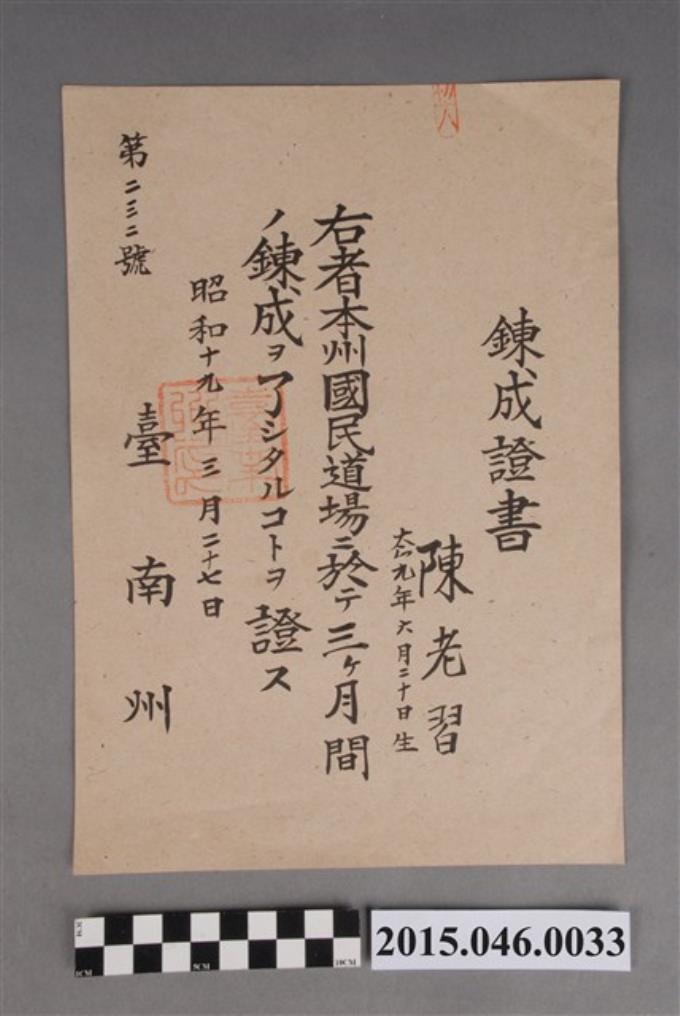 錬成證書
陳老習
大正九年六月二十日生
右者本州國民道場ニ於テ三ヶ月間
ノ錬成ヲ了シタルコトヲ證ス
昭和十九年三月二十七日
臺南州
第二三二號
1CM 5CM 10CM
2015.046.0033